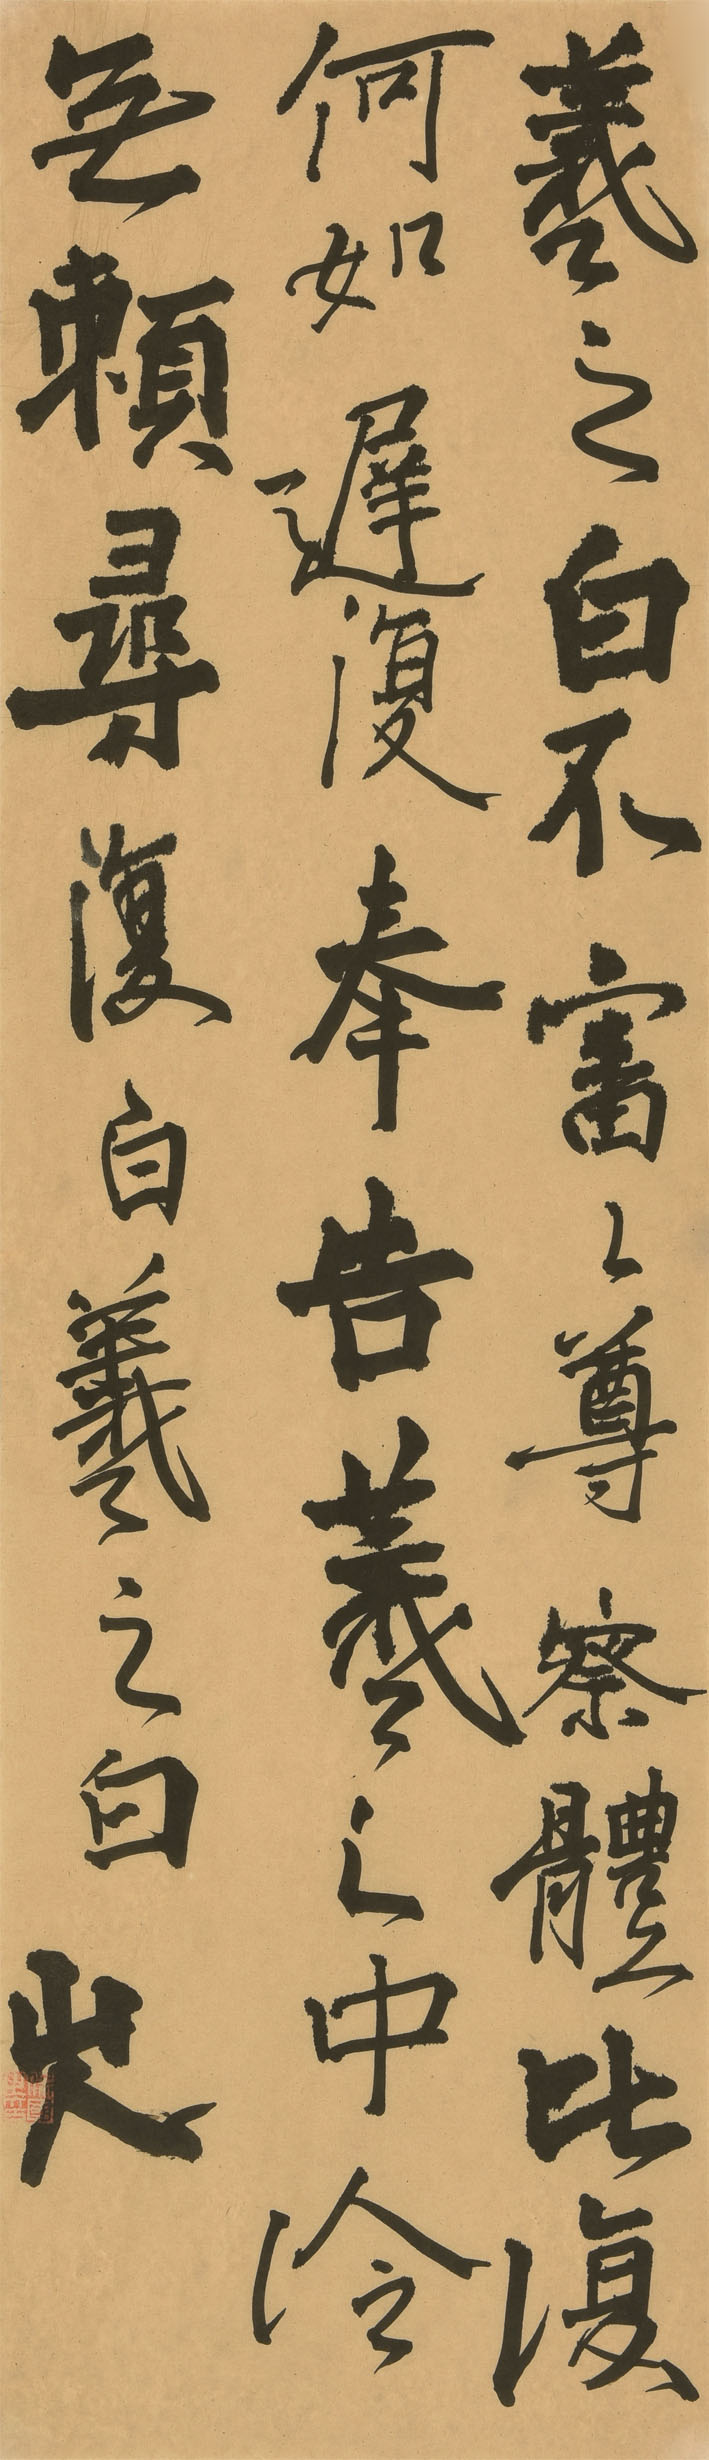 羲之白不審ヽ尊察體比復
何如遲復奉告羲之中冷
無賴尋復白羲之白